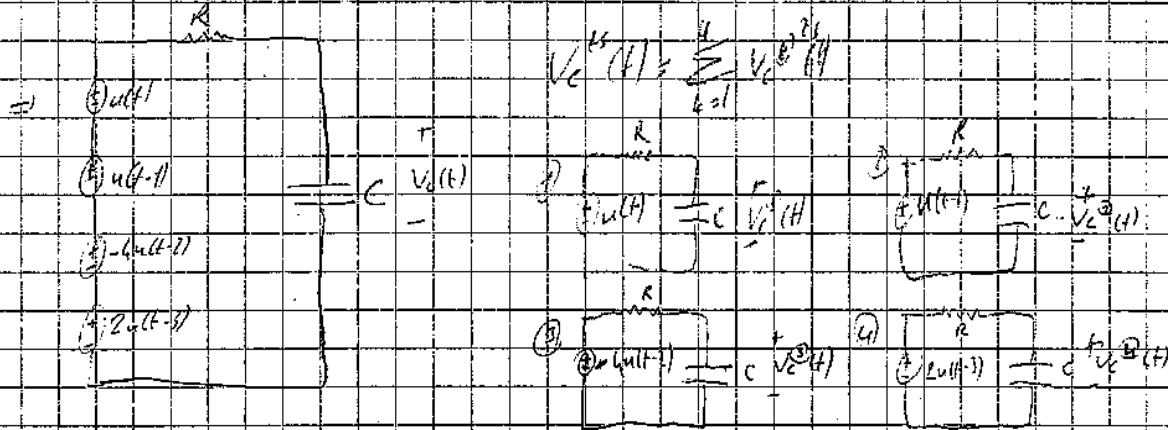 R
⇒ u(t)
u(t-1)
-4u(t-2)
2u(t-3)
C
+
Vc(t)
−
Vc(t) = Σ k=1 4 Vc (t)
① R
u(t) C + Vc(t) −
R
u(t-1) C + Vc②(t) −
③ R
-4u(t-2) C + Vc③(t) −
④ R
2u(t-3) C + Vc④(t)